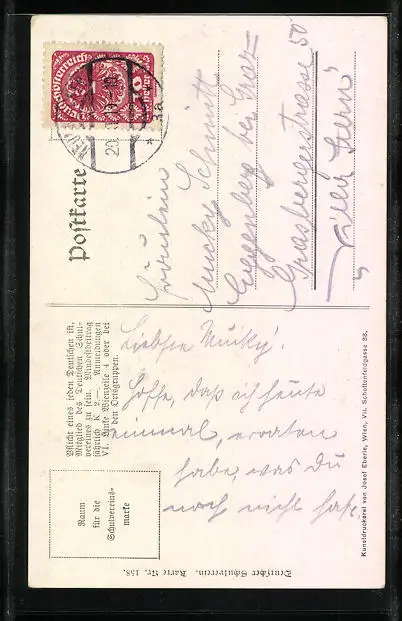 Postkarte
Deutschösterreich
Fräulein
Mucky Schmidt
Eggenberg bei Graz
Grasbergerstrasse 50
Villa Stern
Pflicht eines jeden Deutschen ist,
Mitglied des Deutschen Schul-
vereines zu sein. Mindestbeitrag
jährlich K 2.–. Anmeldungen
VI. Linke Wienzeile 4 oder bei
den Ortsgruppen.
Raum
für die
Schulvereins-
marke
Liebste Mucky!
Hoffe, daß ich heute
einmal, erraten
habe, was Du
noch nicht hast.
Deutscher Schulverein. Karte Nr. 158.
Kunstdruckerei von Josef Eberle, Wien, VII. Schottenfeldgasse 38.